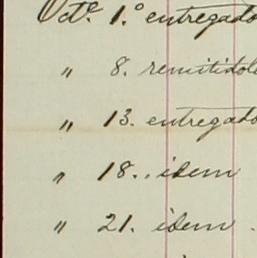 Octe. 1.º entregado
" 8. remitidole
" 13. entregado
" 18. . idem
" 21. idem .